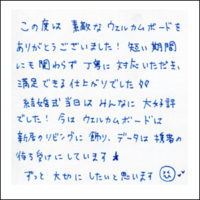 この度は 素敵なウェルカムボードを
ありがとうございました! 短い期間
にも関わらず 丁寧に対応いただき、
満足できる仕上がりでした♪♪
結婚式当日は みんなに 大好評
でした! 今は ウェルカムボードは
新居のリビングに 飾り、データは 携帯の
待ち受けにしています★
ずっと 大切に したいと思います